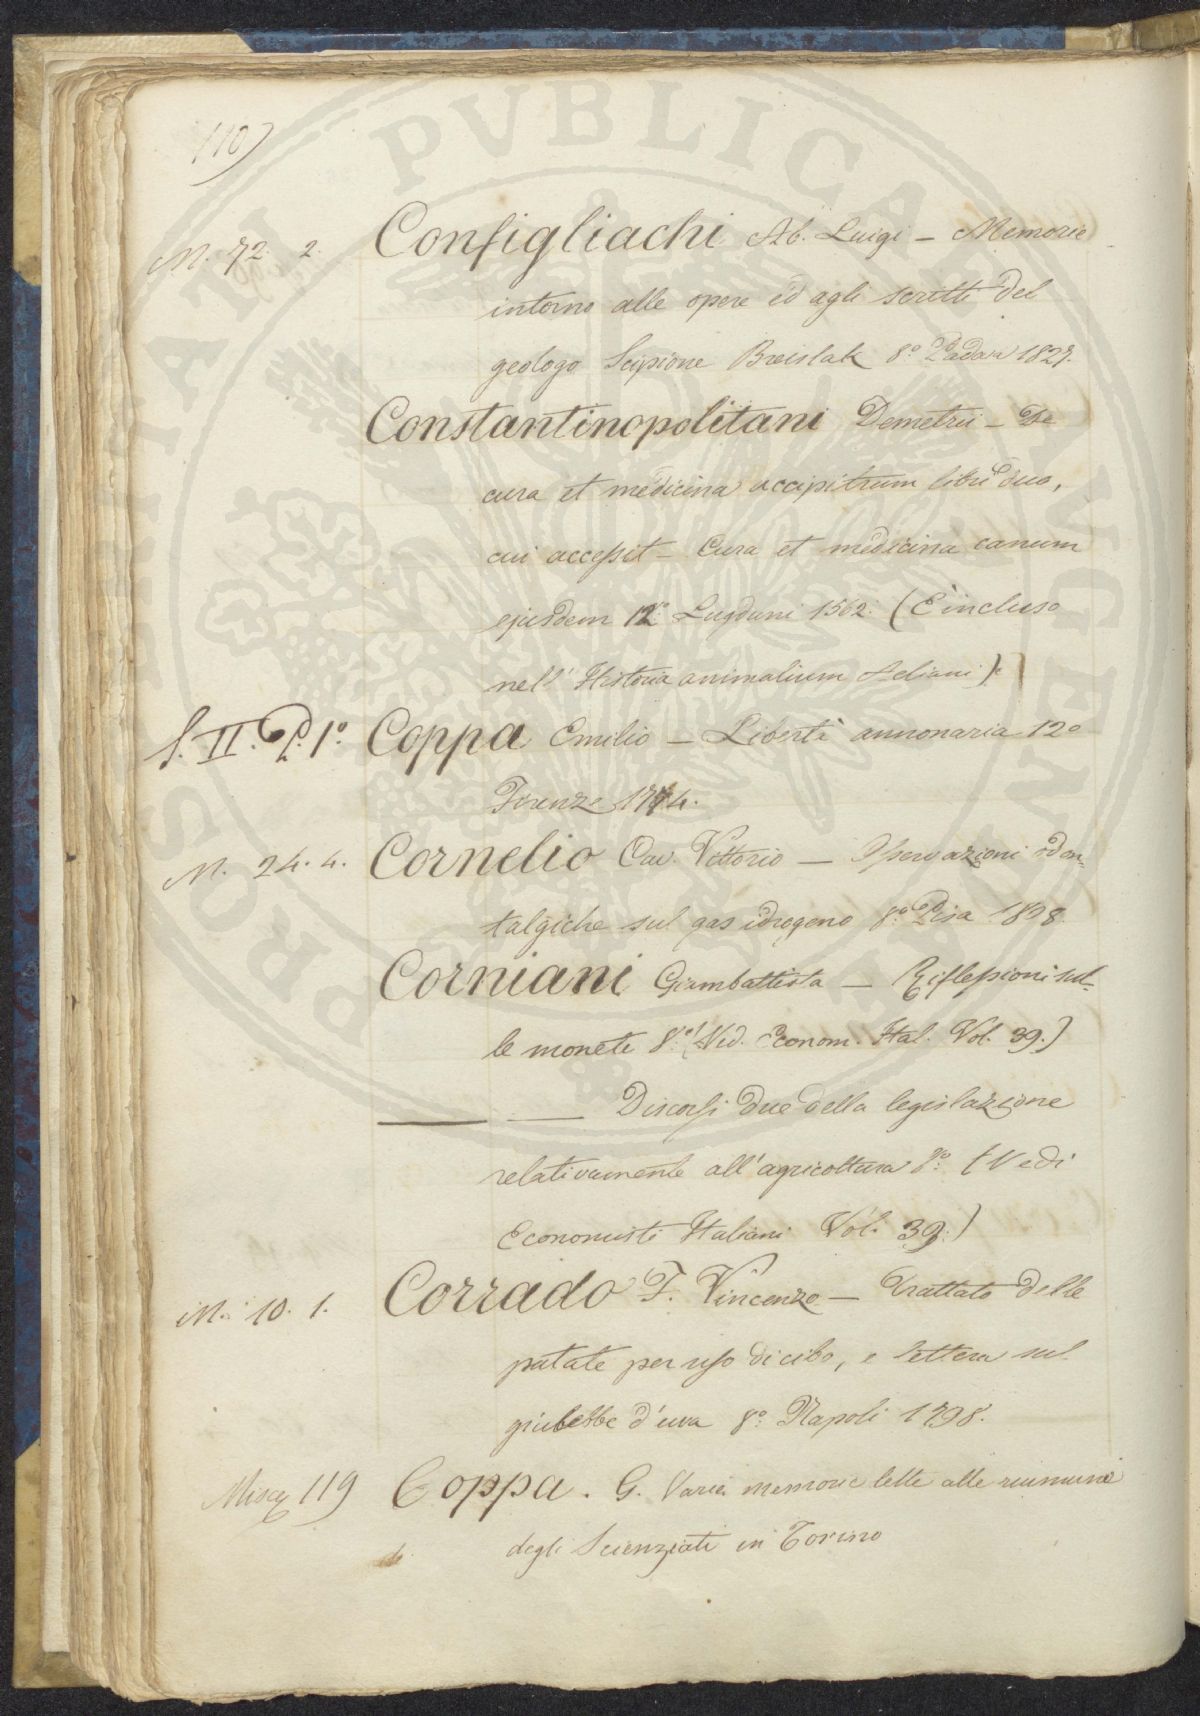 110)
M. 72. 2. Configliachi Ab. Luigi – Memorie
intorno alle opere ed agli scritti del
geologo Scipione Breislak 8.° Padova 1827.
Constantinopolitani Demetrii – De
cura et medicina accipitrum libri duo,
cui accessit – Cura et medicina canum
ejusdem 12.° Lugduni 1562. (È incluso
nell' Historia animalium Aeliani).
S. II. P. 1.° Coppa Emilio – Libertà annonaria 12°
Firenze
M. 24. 4. Cornelio Cav. Vittorio – Osservazioni odon-
talgiche sul gas idrogeno 8.° Pisa
Corniani Giambattista – Riflessioni sul-
le monete 8.° (Ved. Econom. Ital. Vol. 39.)
——— —— Discorsi due della legislazione
relativamente all'agricoltura 8.° (Vedi
Economisti Italiani Vol. 39.)
M. 10. 1. Corrado F. Vincenzo – Trattato delle
patate per uso di cibo, e lettera sul
giulebbe d'uva 8.° Napoli 1798.
Miscel 119 Coppa. G. Varie memorie lette alle riunioni
degli Scienziati in Torino
PROSPERITATI PVBLICAE AVGENDAE